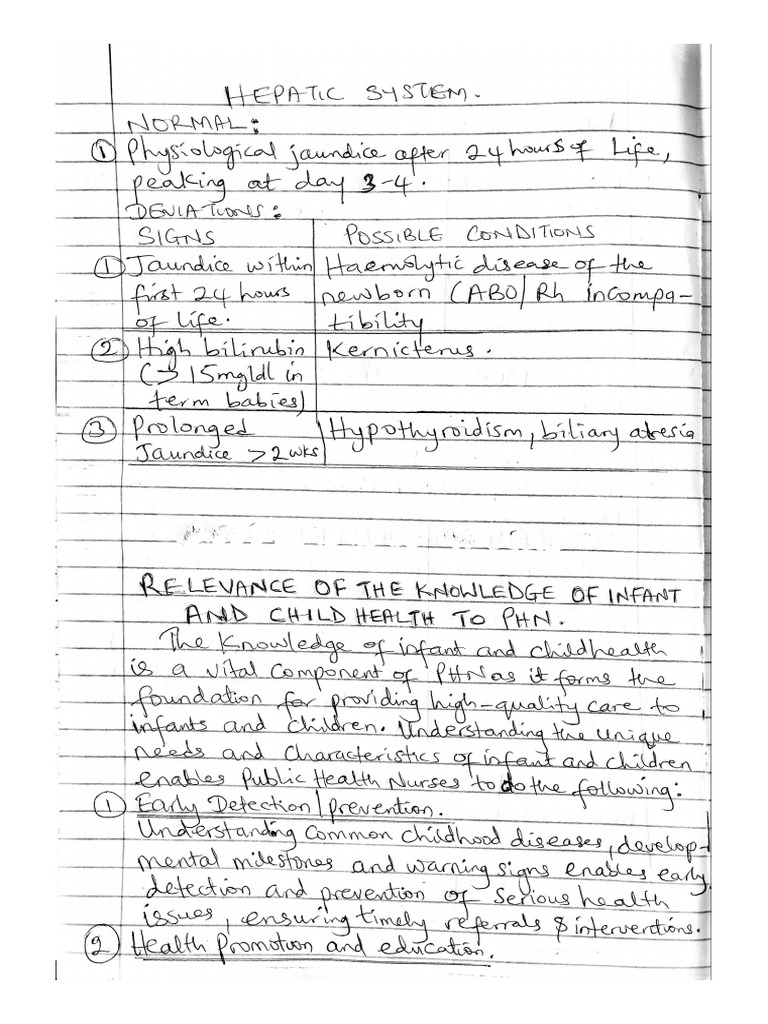 HEPATIC SYSTEM.
NORMAL:
① Physiological jaundice after 24 hours of Life,
peaking at day 3-4.
DEVIATIONS:
SIGNS | POSSIBLE CONDITIONS
① Jaundice within | Haemolytic disease of the
first 24 hours | newborn (ABO/Rh incompa-
of life. | tibility
② High bilirubin | Kernicterus.
(→ 15mg/dl in
term babies)
③ Prolonged | Hypothyroidism, biliary atresia
Jaundice > 2 wks
RELEVANCE OF THE KNOWLEDGE OF INFANT
AND CHILD HEALTH TO PHN.
The Knowledge of infant and childhealth
is a vital component of PHN as it forms the
foundation for providing high-quality care to
infants and children. Understanding the unique
needs and characteristics of infant and children
enables Public Health Nurses to do the following:
① Early Detection/prevention.
Understanding common childhood diseases, develop-
mental milestones and warning signs enables early
detection and prevention of serious health
issues, ensuring timely referrals & interventions.
② Health Promotion and education.